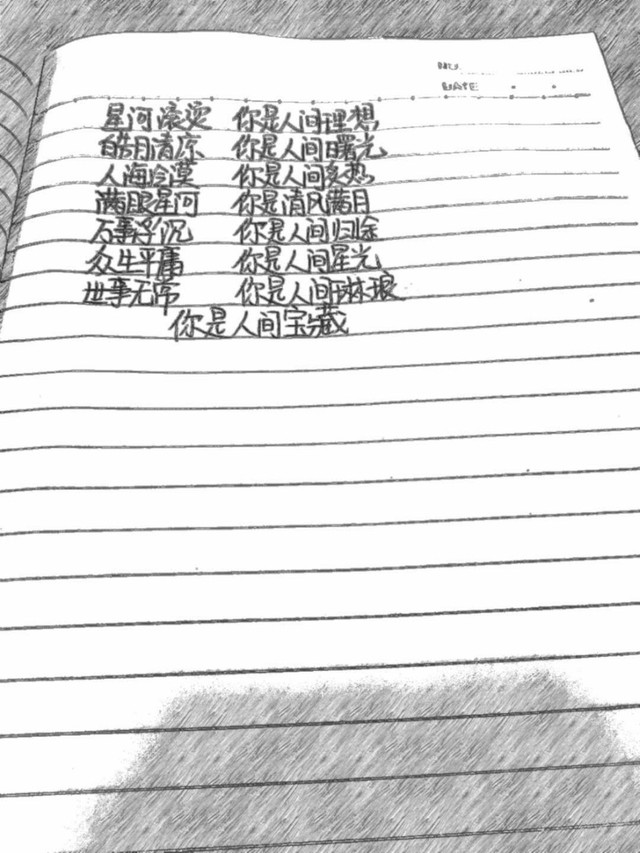 星河滚烫 你是人间理想
皓月清凉 你是人间曙光
人海冷漠 你是人间炙热
满眼星河 你是清风满月
万事浮沉 你是人间归途
众生平庸 你是人间星光
世事无常 你是人间琳琅
你是人间宝藏